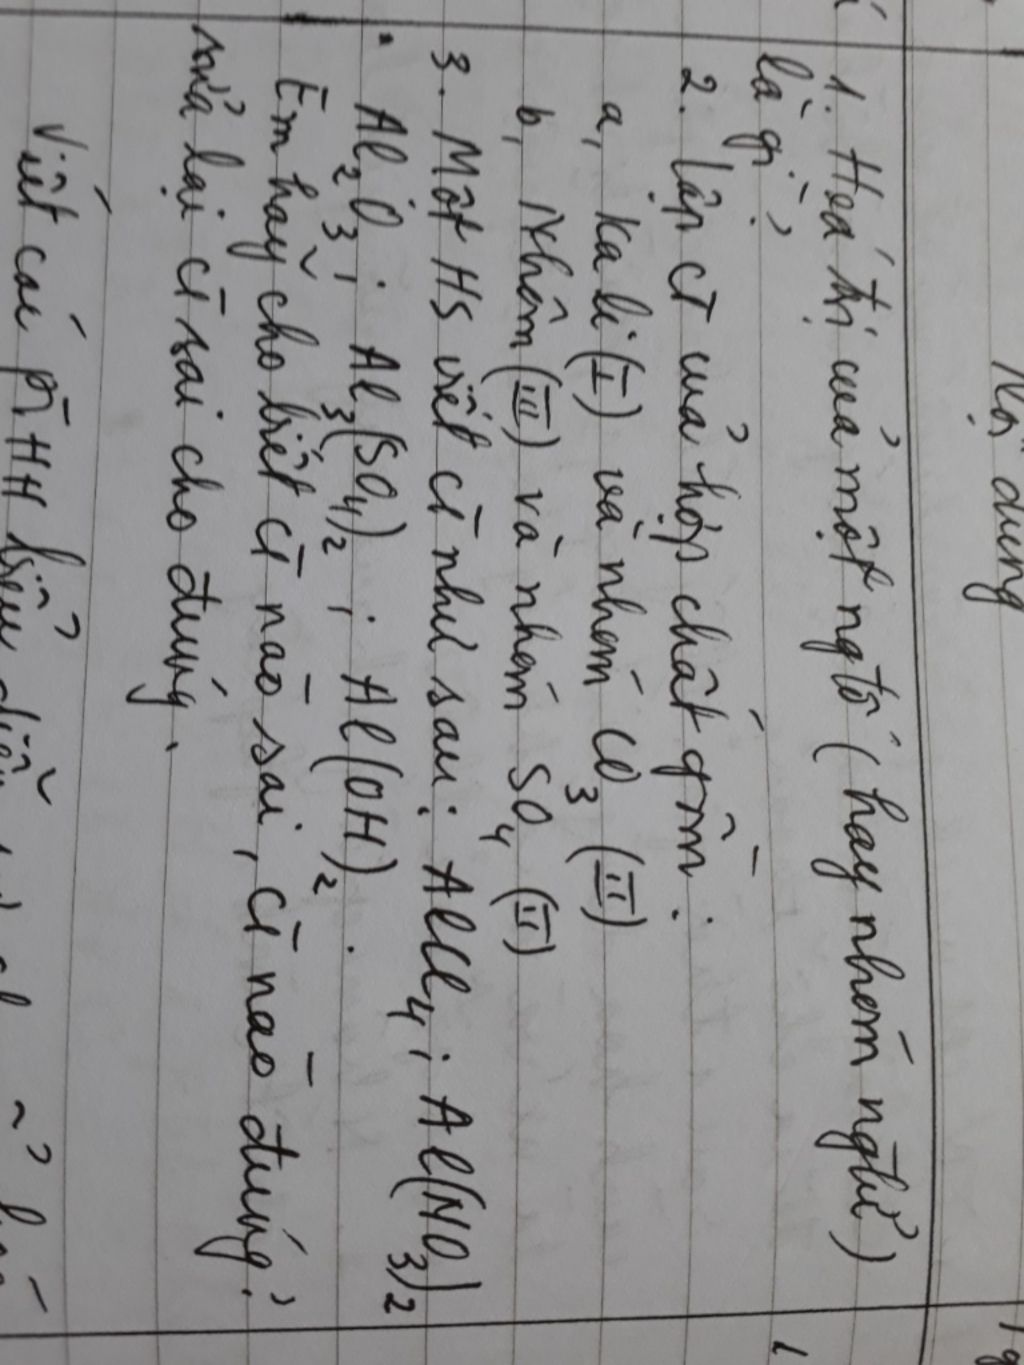 Nội dung
1. Hoá trị của một ngtố (hay nhóm ngtử)
là gì?
2. Lập CT của hợp chất gồm:
a, Kali (I) và nhóm CO3 (II)
b, Nhôm (III) và nhóm SO4 (II)
3. Một HS viết CT như sau: AlCl4; Al(NO3)2
Al2O3; Al3(SO4)2; Al(OH)2.
Em hãy cho biết CT nào sai, CT nào đúng?
sửa lại CT sai cho đúng.
Viết các PTHH biểu diễn